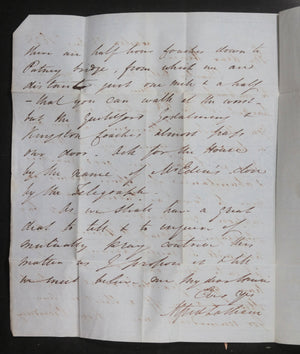 there are half hour coaches down to
Putney bridge, from which we are
distant just one mile & a half
– that you can walk at the worst –
but the Guildford, Godalming &
Kingston coaches almost pass
our door. Ask for the House
by the name of
by the telegraph
As we shall have a great
deal to tell & to inquire of
mutually pray contrive this
matter as I propose &
we meet believe me my dear
Ever Yrs
Alfred